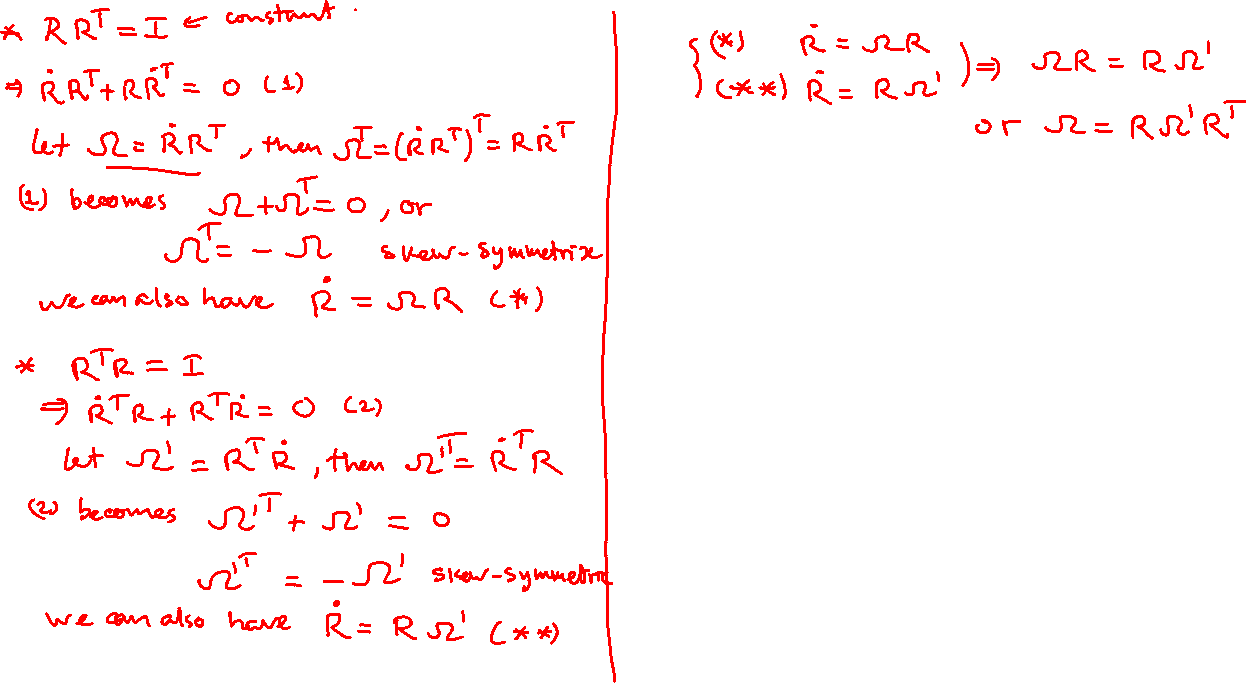 * R Rᵀ = I ← constant.
⇒ ṘRᵀ + RṘᵀ = 0 (1)
let Ω = ṘRᵀ, then Ωᵀ = (ṘRᵀ)ᵀ = RṘᵀ
(1) becomes Ω + Ωᵀ = 0, or
Ωᵀ = - Ω skew-symmetrix
we can also have Ṙ = ΩR (*)
* RᵀR = I
⇒ ṘᵀR + RᵀṘ = 0 (2)
let Ω' = RᵀṘ, then Ω'ᵀ = ṘᵀR
(2) becomes Ω'ᵀ + Ω' = 0
Ω'ᵀ = - Ω' skew-symmetric
we can also have Ṙ = RΩ' (**)
{ (*) Ṙ = ΩR
(**) Ṙ = RΩ' ) ⇒ ΩR = RΩ'
or Ω = RΩ'Rᵀ